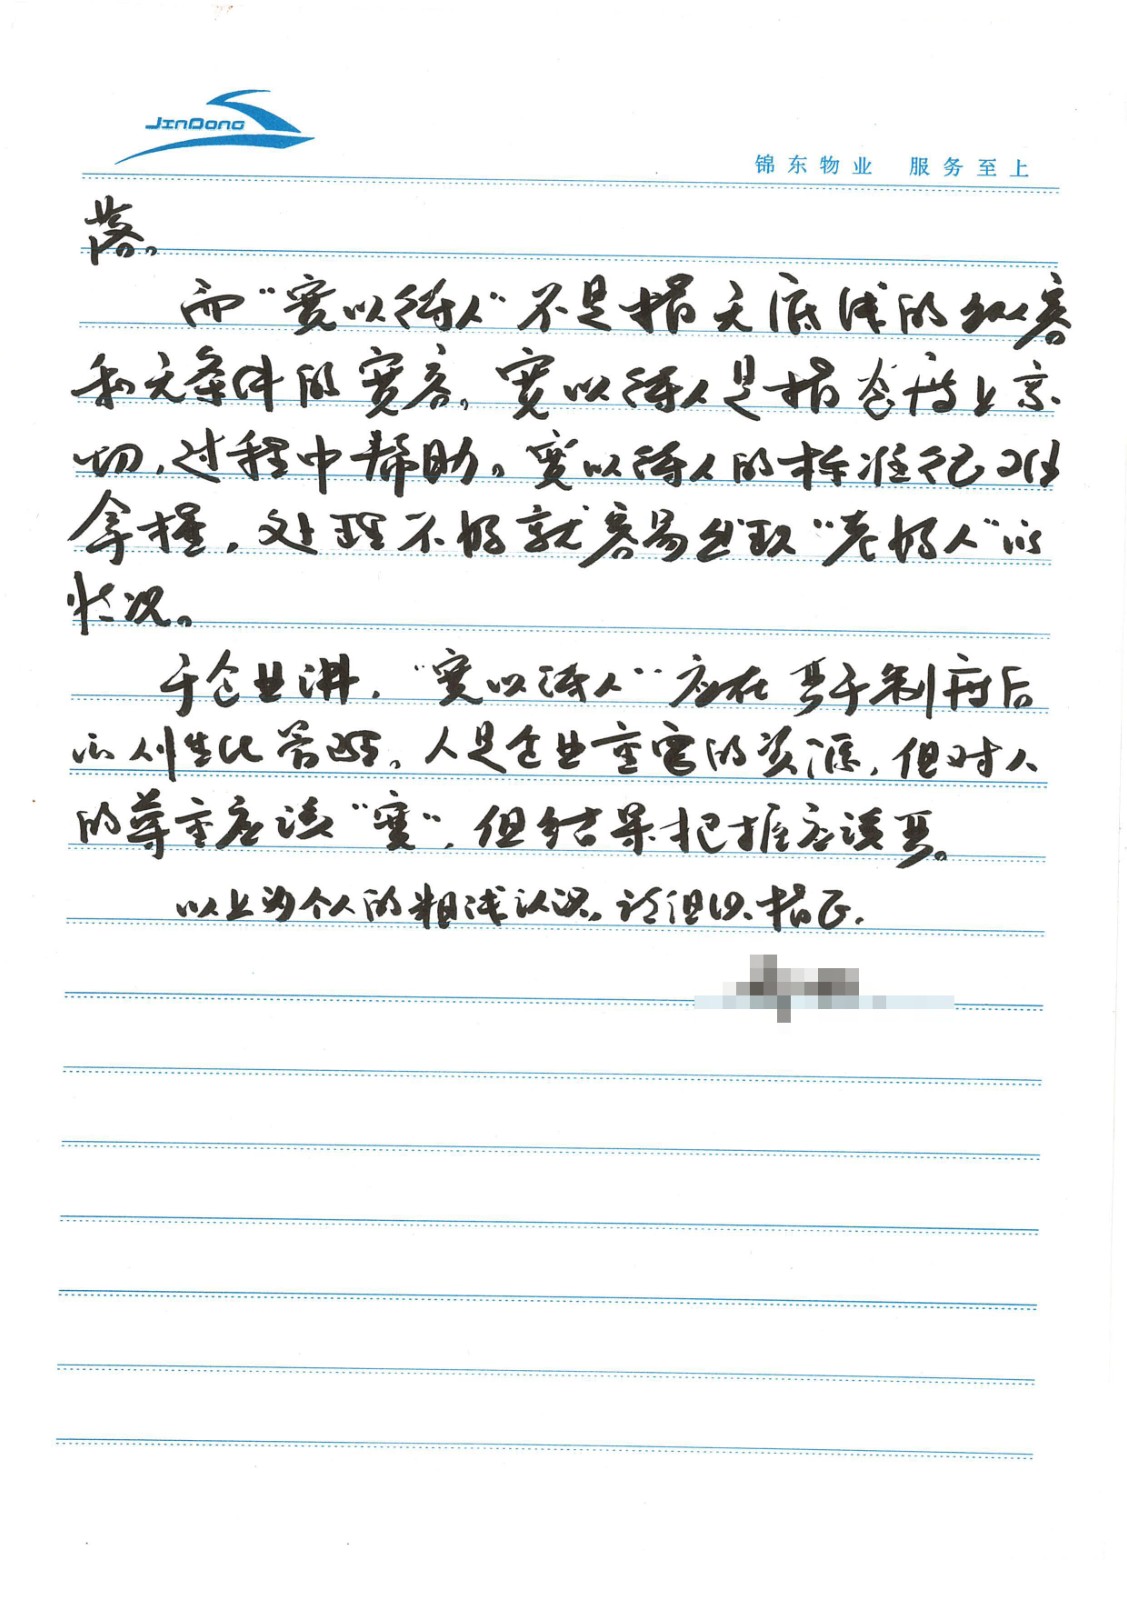 JinDong
锦东物业 服务至上
落。
而“宽以待人”不是指无底线的纵容
和无条件的宽容。宽以待人是指态度上亲
切,过程中帮助。宽以待人的标准很难
拿握,处理不好就容易出现“老好人”的
情况。
于企业讲,“宽以待人”应在严于制度后
的人性化管理。人是企业重要的资源,但对人
的尊重应该“宽”,但结果把握应该严。
以上为个人的粗浅认识。请组织指正.